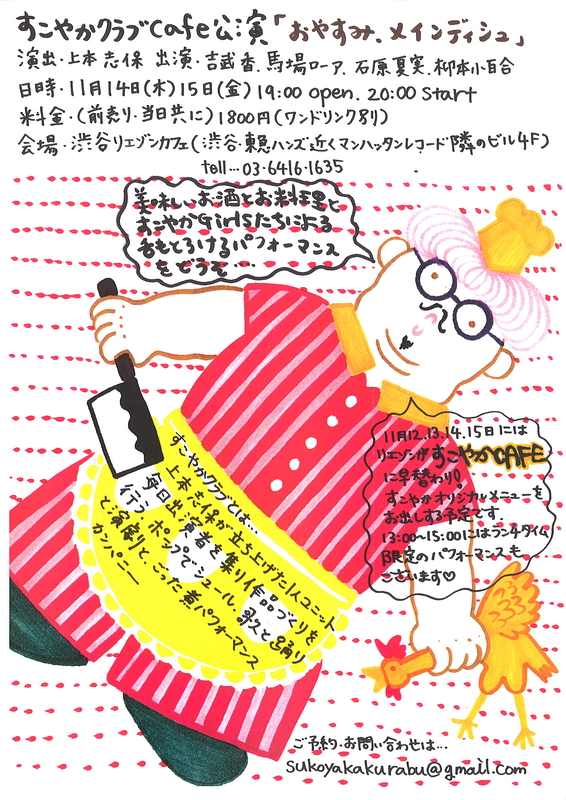 すこやかクラブcafe公演「おやすみ、メインディシュ」
演出・上本志保 出演・吉武香、馬場ローア、石原夏実、柳本小百合
日時・11月14日(木)15日(金)19:00 open. 20:00 start
料金・(前売り・当日共に)1800円(ワンドリンク別り)
会場・渋谷リエゾンカフェ(渋谷・東急ハンズ近くマンハッタンレコード隣のビル4F)
tell…03・6416・1635
美味しいお酒とお料理と
すこやかGirlsたちによる
舌もとろけるパフォーマンス
をどうぞ…
11月12.13.14.15日には
リエゾンがすこやかCAFE
に早替わり♡
すこやかオリジナルメニューを
お出しする予定です。
13:00〜15:00にはランチタイム
限定のパフォーマンスも
ございます♡
すこやかクラブとは…
上本志保が立ち上げた1人ユニット
毎日出演者を集い作品づくりを
行う。ポップでシュール、歌と踊り
と演劇と、ごった煮パフォーマンス
カンパニー
ご予約・お問い合わせは…
sukoyakakurabu@gmail.com